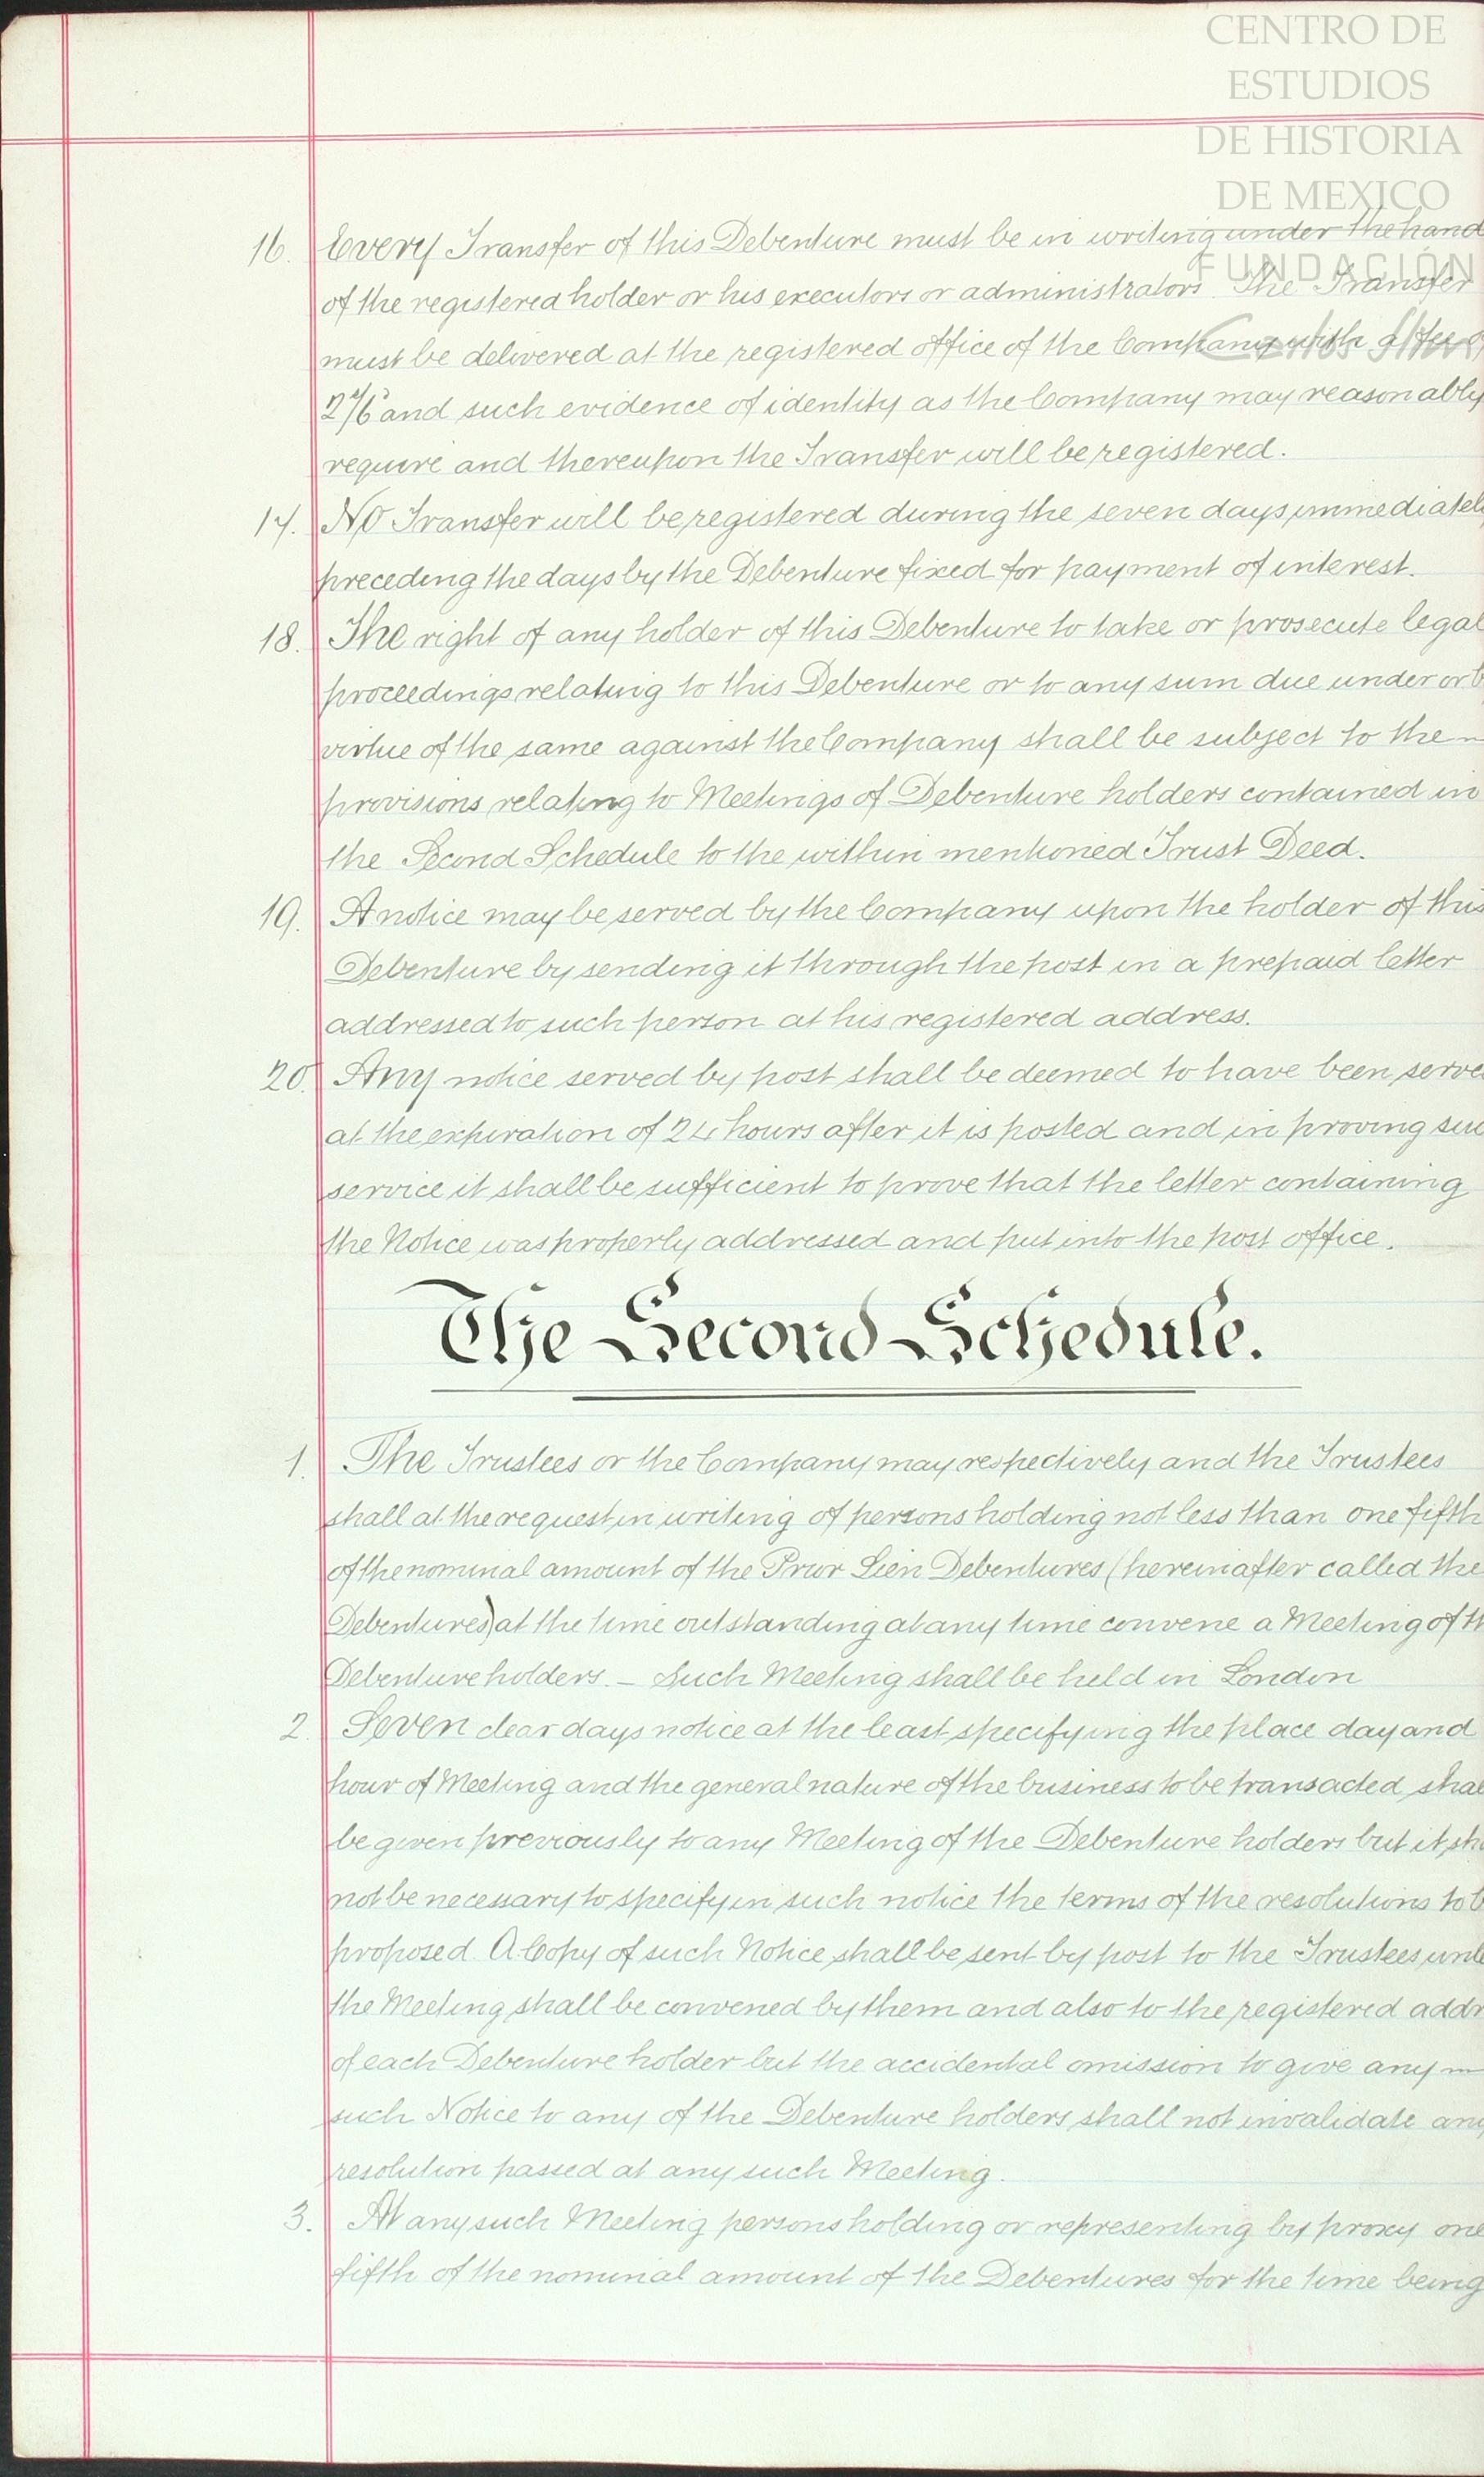 CENTRO DE
ESTUDIOS
DE HISTORIA
DE MEXICO
FUNDACIÓN
Carlos Slim
16. Every Transfer of this Debenture must be in writing under the hand
of the registered holder or his executors or administrators. The Transfer
must be delivered at the registered office of the Company with a fee of
2/6 and such evidence of identity as the Company may reasonably
require and thereupon the Transfer will be registered.
17. No Transfer will be registered during the seven days immediately
preceding the days by the Debenture fixed for payment of interest.
18. The right of any holder of this Debenture to take or prosecute legal
proceedings relating to this Debenture or to any sum due under or b
virtue of the same against the Company shall be subject to the
provisions relating to Meetings of Debenture holders contained in
the Second Schedule to the within mentioned Trust Deed.
19. A notice may be served by the Company upon the holder of this
Debenture by sending it through the post in a prepaid letter
addressed to such person at his registered address.
20. Any notice served by post shall be deemed to have been serve
at the expiration of 24 hours after it is posted and in proving suc
service it shall be sufficient to prove that the letter containing
the Notice was properly addressed and put into the post office.
The Second Schedule.
1. The Trustees or the Company may respectively and the Trustees
shall at the request in writing of persons holding not less than one fifth
of the nominal amount of the Prior Lien Debentures (hereinafter called the
Debentures) at the time outstanding at any time convene a Meeting of th
Debenture holders. – Such Meeting shall be held in London
2. Seven clear days notice at the least specifying the place day and
hour of Meeting and the general nature of the business to be transacted shal
be given previously to any Meeting of the Debenture holders but it sha
not be necessary to specify in such notice the terms of the resolutions to b
proposed. A Copy of such Notice shall be sent by post to the Trustees unle
the Meeting shall be convened by them and also to the registered addr
of each Debenture holder but the accidental omission to give any
such Notice to any of the Debenture holders shall not invalidate any
resolution passed at any such Meeting.
3. At any such Meeting persons holding or representing by proxy one
fifth of the nominal amount of the Debentures for the time being